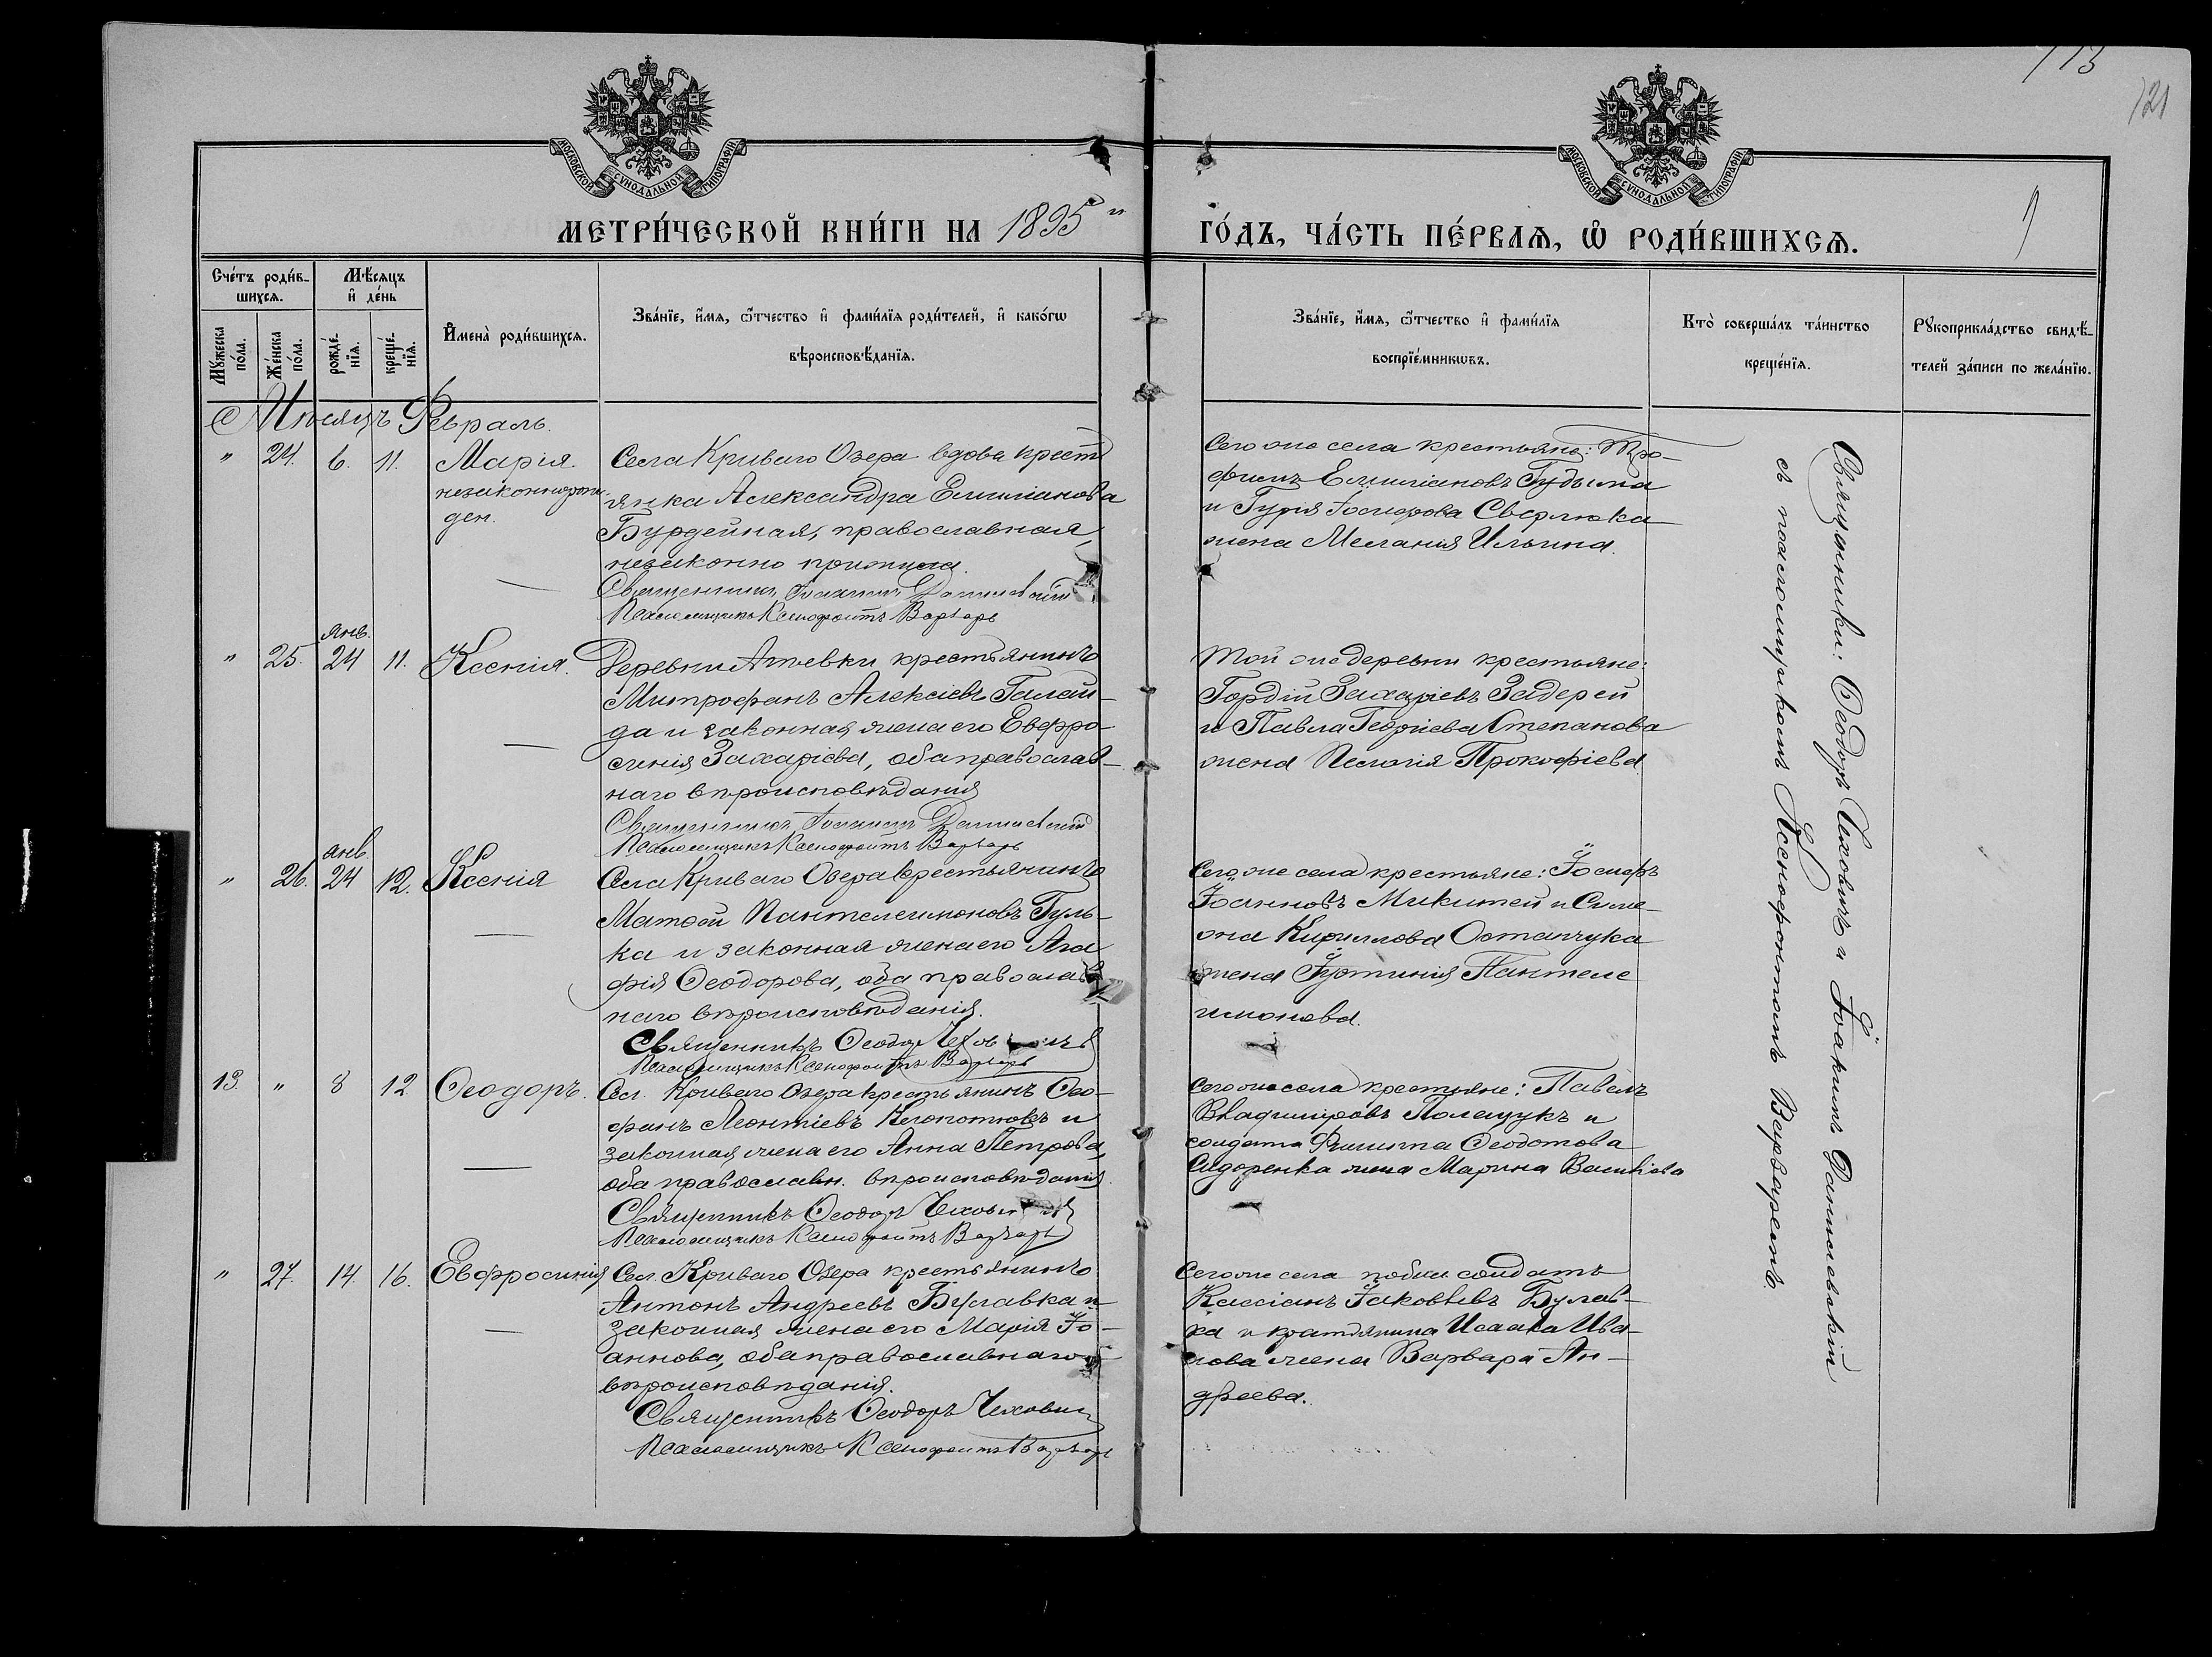 113
121
7
МОСКОВСКОЙ СѴНОДАЛЬНОЙ ТИПОГРАФІИ
МОСКОВСКОЙ СѴНОДАЛЬНОЙ ТИПОГРАФІИ
МЕТРИ́ЧЕСКОЙ КНИ́ГИ НА 1895 ГО́ДЪ, ЧА́СТЬ ПЕ́РВАѦ, Ѡ РОДИ́ВШИХСѦ.
Сче́тъ роди́в-
шихсѧ.
Мѣ́сѧцъ
и҆ де́нь
Мꙋ́жеска
по́ла.
Же́нска
по́ла.
рожде́-
нїѧ.
креще́-
нїѧ.
И҆мена̀ роди́вшихсѧ.
Зва́нїе, и҆́мѧ, ѻ҆́тчество и҆ фами́лїѧ роди́телей, и҆ како́гѡ
вѣроисповѣ́данїѧ.
Зва́нїе, и҆́мѧ, ѻ҆́тчество и҆ фами́лїѧ
воспрїе́мникѡвъ.
Кто̀ соверша́лъ та́инство
креще́нїѧ.
Рꙋкоприкла́дство свидѣ́-
телей за́писи по жела́нїю.
Мѣсяцъ Февраль.
" 24. 6. 11. Марія.
незаконнорож
ден.
Села Криваго Озера вдова крест
янка Александра Емиліанова
Бурдейная, православная,
незаконно прижила.
Священникъ Іоакимъ Данилевскій
Псаломщикъ Ксенофонтъ Варварь
Сего же села крестьяне: Тро-
фимъ Емиліановъ Гудыма
и Гурія Іосифова Сверлюка
жена Меланія Ильина.
" 25. янв. 24 11. Ксенія.
Деревни крестьянинъ
Митрофанъ Алексіевъ Галай-
да и законная жена его Евфро-
синія Захаріева, оба православ-
наго вѣроисповѣданія
Священникъ Іоакимъ Данилевскій
Псаломщикъ Ксенофонтъ Варварь
Той же деревни крестьяне:
Гордій Захаріевъ Задерей
и Павла Георгіева Степанова
жена Пелагія Прокофіева
" 26. янв. 24 12. Ксенія
Села Криваго Озера крестьянинъ
Матѳей Пантелеимоновъ Гуль-
ка и законная жена его Ага
фія Ѳеодорова, оба православ
наго вѣроисповѣданія.
Священникъ Ѳеодоръ Чеховичъ
Псаломщикъ Ксенофонтъ Варварь
Сего же села крестьяне: Іосифъ
Іоанновъ Микитей и Симе-
она Кириллова Остапчука
жена Іустинія Пантеле
имонова.
13. " 8 12. Ѳеодоръ.
Сел. Криваго Озера крестьянинъ Ѳео-
фанъ Леонтіевъ Клопотюкъ и
законная жена его Анна Петрова,
оба православн. вѣроисповѣданія.
Священникъ Ѳеодоръ Чеховичъ
Псаломщикъ Ксенофонтъ Варварь
Сего же села крестьяне: Павелъ
Владиміровъ Полещукъ и
солдата Филиппа Ѳеодотова
Сидоренка жена Марина Васильева
" 27. 14. 16. Евфросинія
Сел. Криваго Озера крестьянинъ
Антонъ Андреевъ Булавка и
законная жена его Марія Іо-
аннова, оба православнаго
вѣроисповѣданія.
Священникъ Ѳеодоръ Чеховичъ
Псаломщикъ Ксенофонтъ Варварь
Сего же села солдатъ
Кассіанъ Іаковлевъ Булав-
ка и Исаака Ива-
нова жена Варвара Ан-
дреева.
Священники: Ѳеодоръ Чеховичъ и Іоакимъ Данилевскій
съ псаломщикомъ Ксенофонтомъ Варваремъ